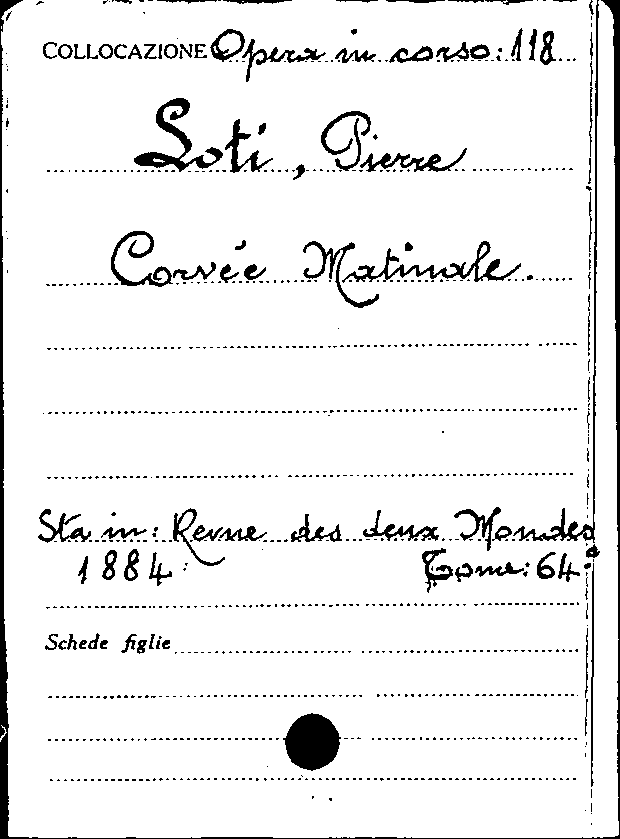 COLLOCAZIONE Opera in corso: 118
Loti, Pierre
Corvée Matinale.
Sta in: Revue des deux Mondes
1884. Tome: 64°
Schede figlie